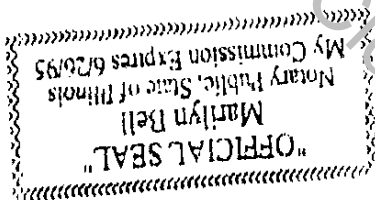 "OFFICIAL SEAL"
Marilyn Bell
Notary Public, State of Illinois
My Commission Expires 6/26/95